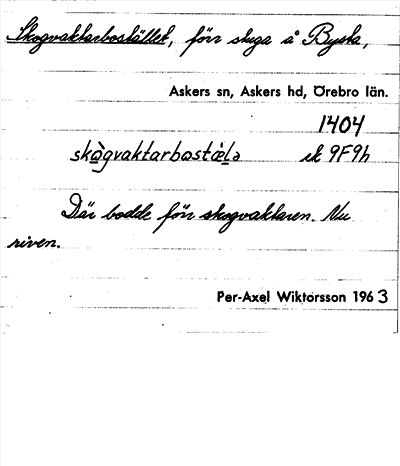 Skogvaktarbostället, förr stuga å Bysta,
Askers sn, Askers hd, Örebro län.
1404
skògvaktarbostæ̀lə ek 9F9h
Där bodde förr skogvaktaren. Nu
riven.
Per-Axel Wiktorsson 1963